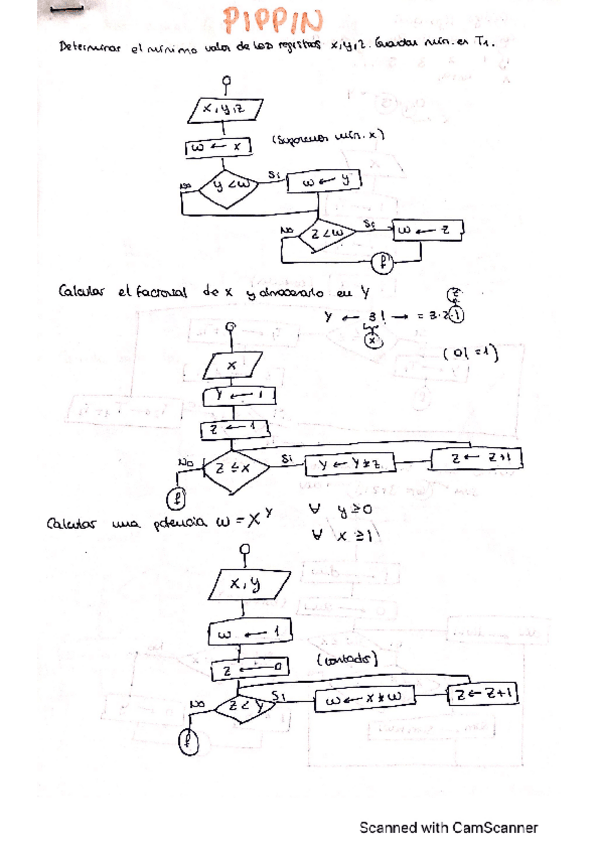 PIPPIN
Determinar el mínimo valor de los registros x,y,z. Guardar mín. en T1.
x,y,z
w ← x (Suponemos mín. x)
No y < w Si w ← y
No z < w Si w ← z
f
Calcular el factorial de x y almacenarlo en Y
z
Y ← 3! → = 3·2·1
x
(0! = 1)
x
Y ← 1
Z ← 1
No Z ≤ x Si Y ← Y * z Z ← Z+1
f
Calcular una potencia w = x^y ∀ y ≥ 0
∀ x ≥ 1
x, y
w ← 1
z ← 0 (contador)
No z < y Si w ← x * w z ← z+1
f
Scanned with CamScanner